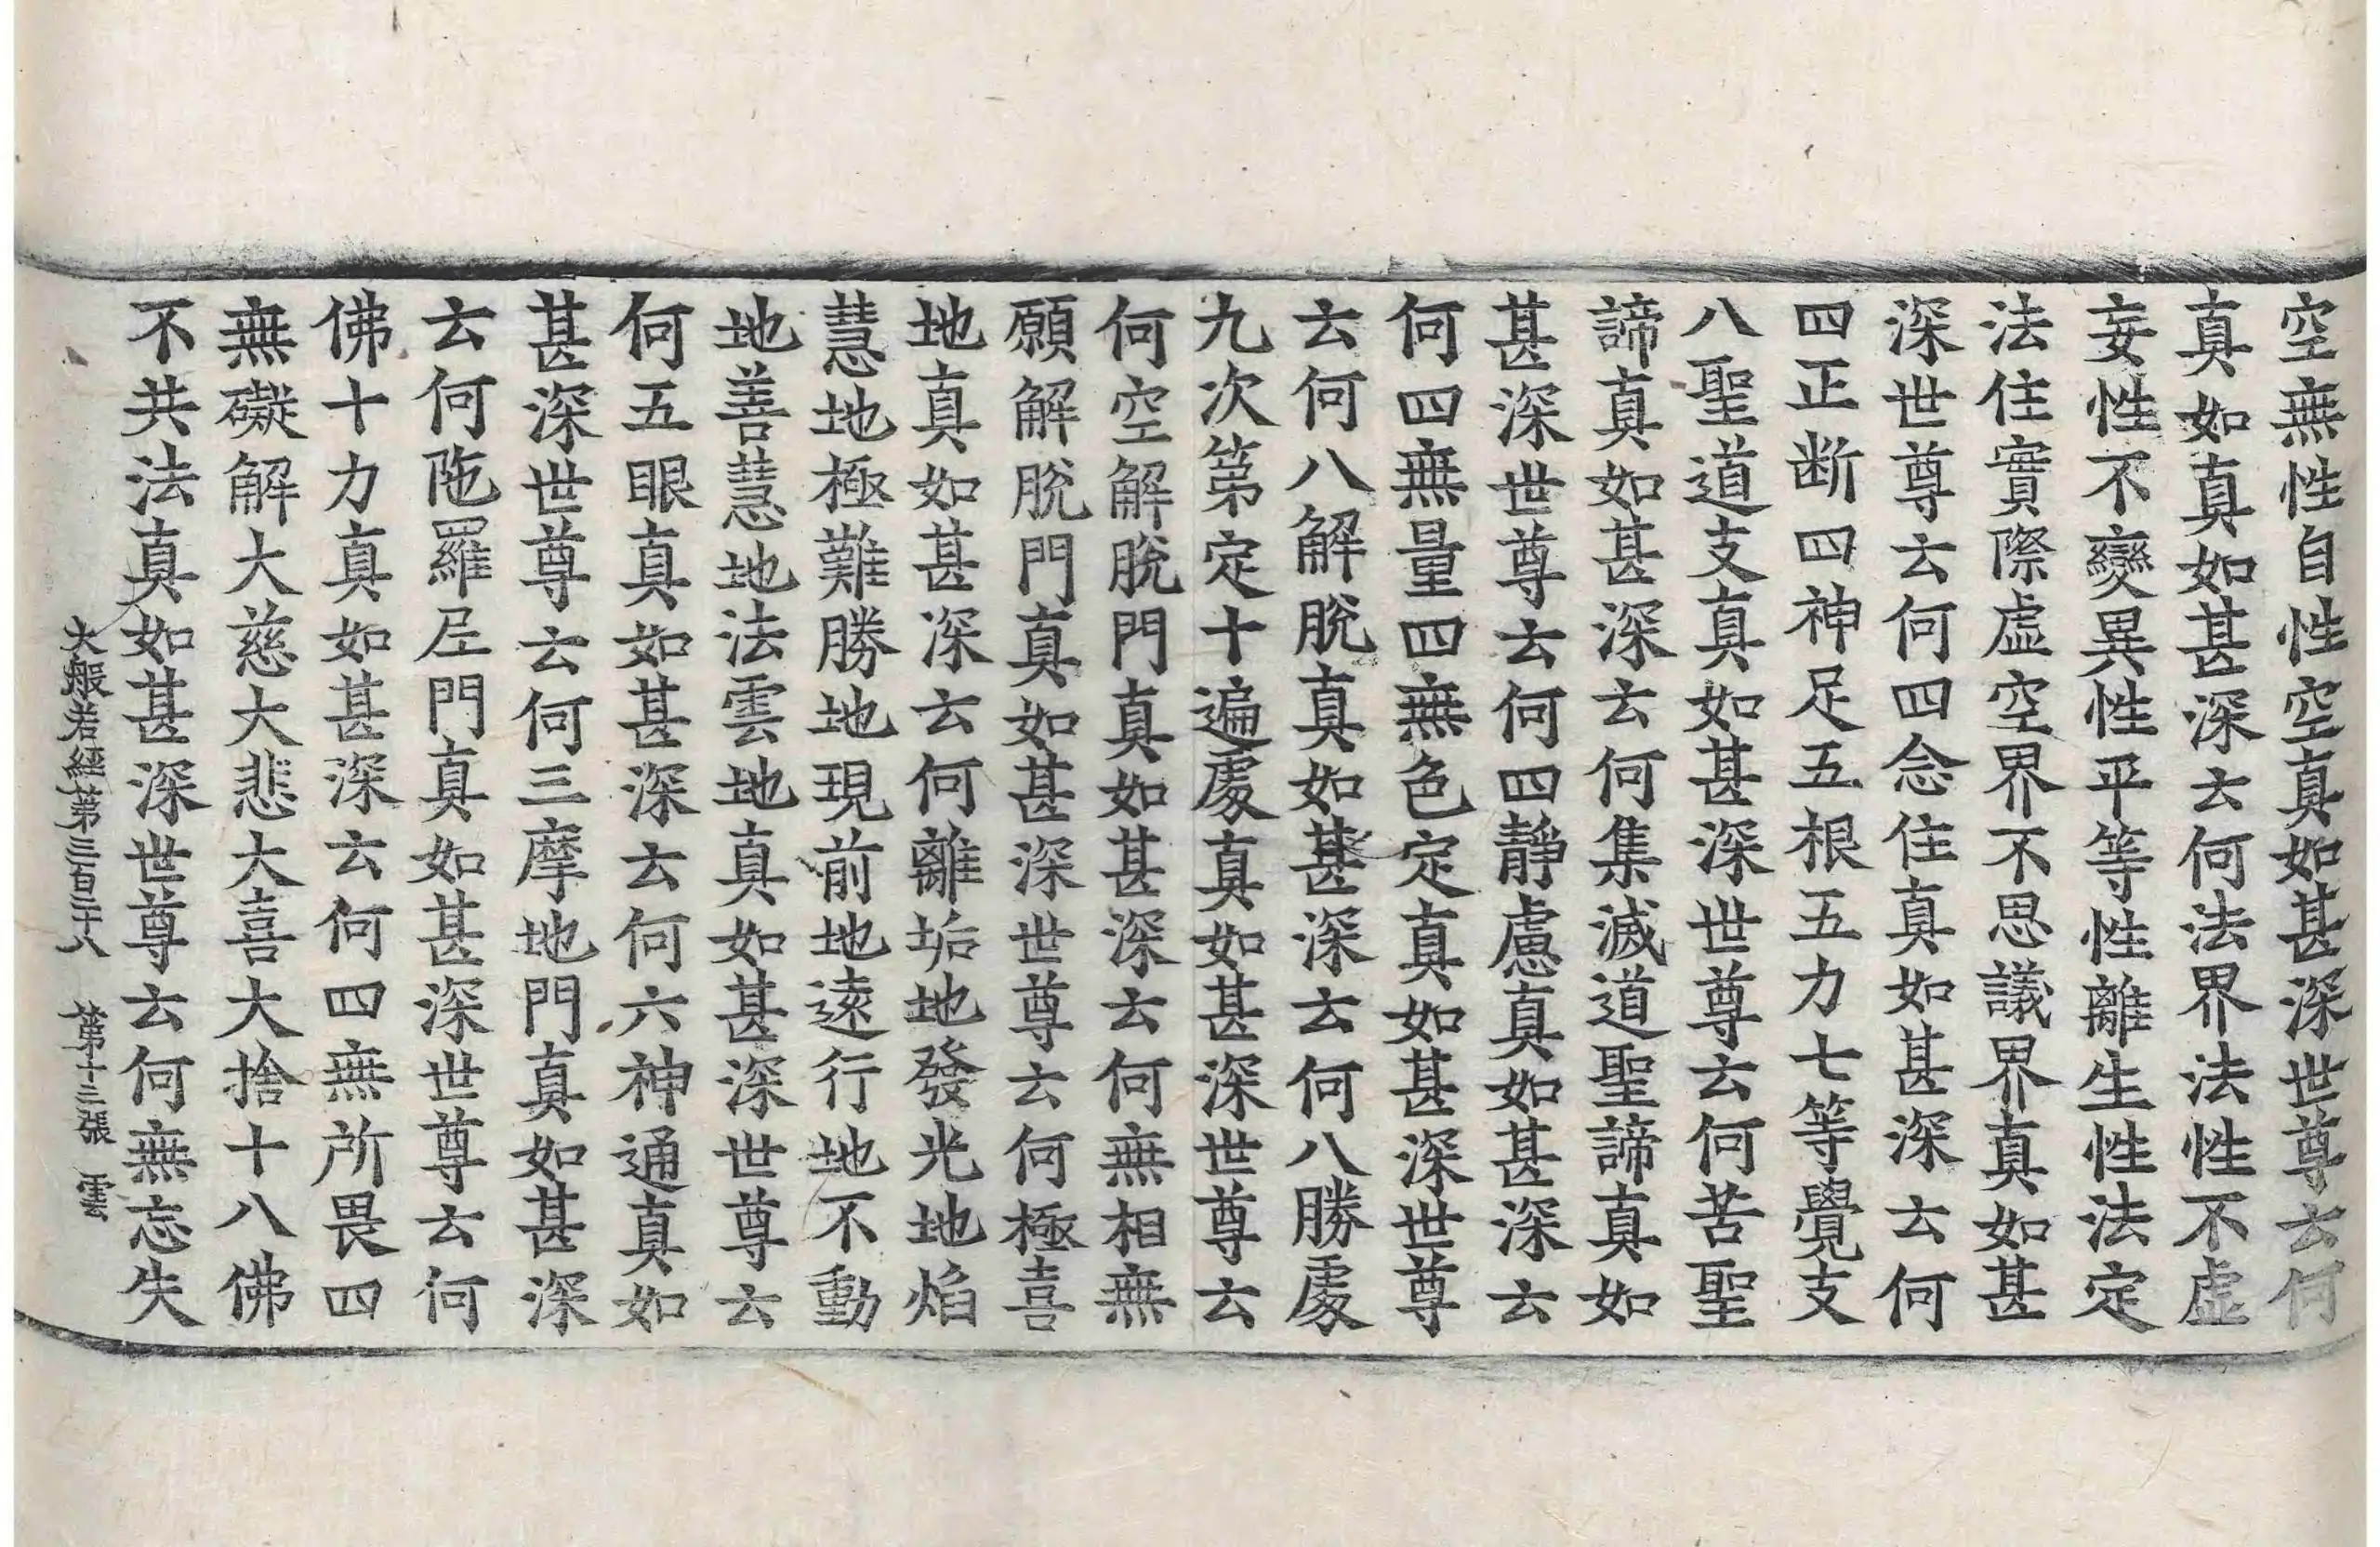 空無性自性空真如甚深世尊云何
真如真如甚深云何法界法性不虛
妄性不變異性平等性離生性法定
法住實際虛空界不思議界真如甚
深世尊云何四念住真如甚深云何
四正断四神足五根五力七等覺支
八聖道支真如甚深世尊云何苦聖
諦真如甚深云何集滅道聖諦真如
甚深世尊云何四靜慮真如甚深云
何四無量四無色定真如甚深世尊
云何八解脫真如甚深云何八勝處
九次第定十遍處真如甚深世尊云
何空解脫門真如甚深云何無相無
願解脫門真如甚深世尊云何極喜
地真如甚深云何離垢地發光地焰
慧地極難勝地現前地遠行地不動
地善慧地法雲地真如甚深世尊云
何五眼真如甚深云何六神通真如
甚深世尊云何三摩地門真如甚深
云何陁羅尼門真如甚深世尊云何
佛十力真如甚深云何四無所畏四
無礙解大慈大悲大喜大捨十八佛
不共法真如甚深世尊云何無忘失
大般若經第三百二十八 第十三張 雲